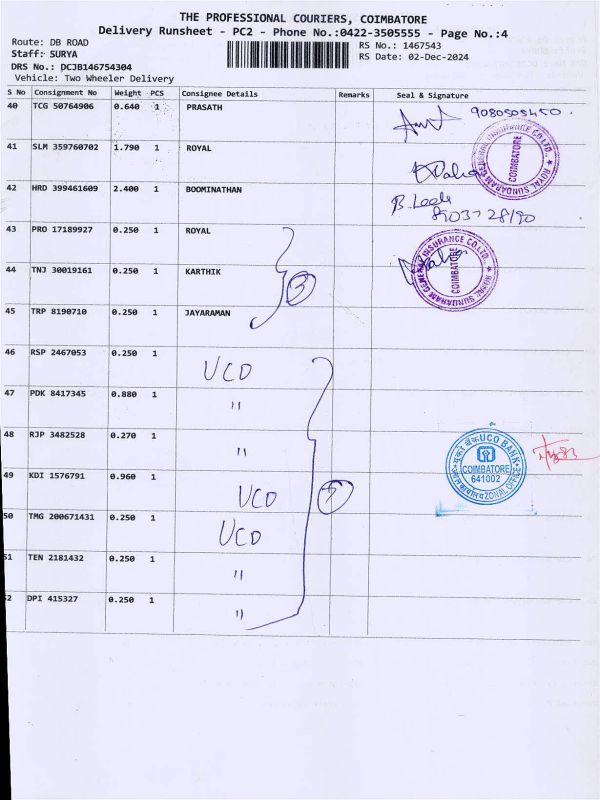 THE PROFESSIONAL COURIERS, COIMBATORE
Delivery Runsheet - PC2 - Phone No.:0422-3505555 - Page No.:4
Route: DB ROAD
Staff: SURYA
DRS No.: DCJB146754304
Vehicle: Two Wheeler Delivery
RS No.: 1467543
RS Date: 02-Dec-2024
S No Consignment No Weight PCS Consignee Details Remarks Seal & Signature
40 TCG 50764906 0.640 1 PRASATH 9080505450
41 SLM 359760702 1.790 1 ROYAL
ROYAL SUNDARAM GENERAL INSURANCE CO.LTD. COIMBATORE
42 HRD 399461609 2.400 1 BOOMINATHAN B. Leela
8903728190
43 PRO 17189927 0.250 1 ROYAL
ROYAL SUNDARAM GENERAL INSURANCE CO.LTD. COIMBATORE
44 TNJ 30019161 0.250 1 KARTHIK
3
45 TRP 8190710 0.250 1 JAYARAMAN
46 RSP 2467053 0.250 1 UCO
47 PDK 8417345 0.880 1 "
48 RJP 3482528 0.270 1 "
UCO BANK
COIMBATORE
641002
ZONAL OFFICE
49 KDI 1576791 0.960 1 UCO
50 TMG 200671431 0.250 1 UCO
51 TEN 2181432 0.250 1 "
52 DPI 415327 0.250 1 "